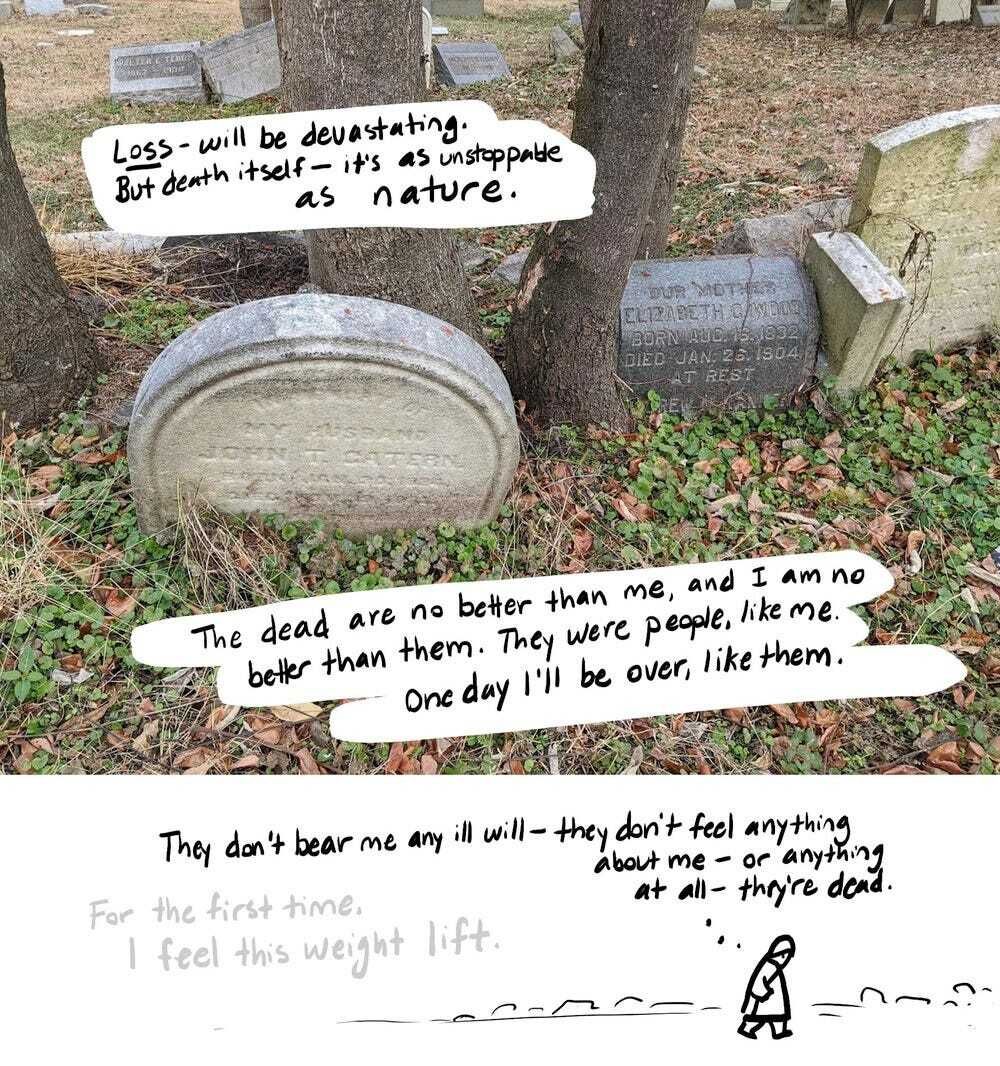 WALTER C. TEBBS
Loss - will be devastating.
But death itself - it's as unstoppable
as nature.
OUR MOTHER
ELIZABETH C. WOOD
BORN AUG. 15. 1832
DIED JAN. 26. 1904
AT REST
MY HUSBAND
JOHN T.
The dead are no better than me, and I am no
better than them. They were people, like me.
One day I'll be over, like them.
They don't bear me any ill will - they don't feel anything
about me - or anything
at all - they're dead.
For the first time,
I feel this weight lift.